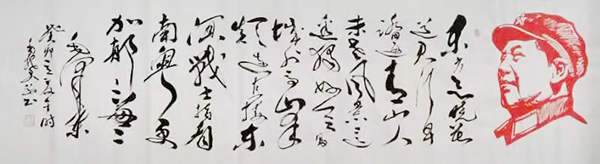 东方欲晓莫
道君行早
踏遍青山人
未老风景这
边独好会昌
城外高峰
颠连直接东
溟战士指看
南粤更
加郁〻葱〻
毛泽东
癸卯之夏午时
书